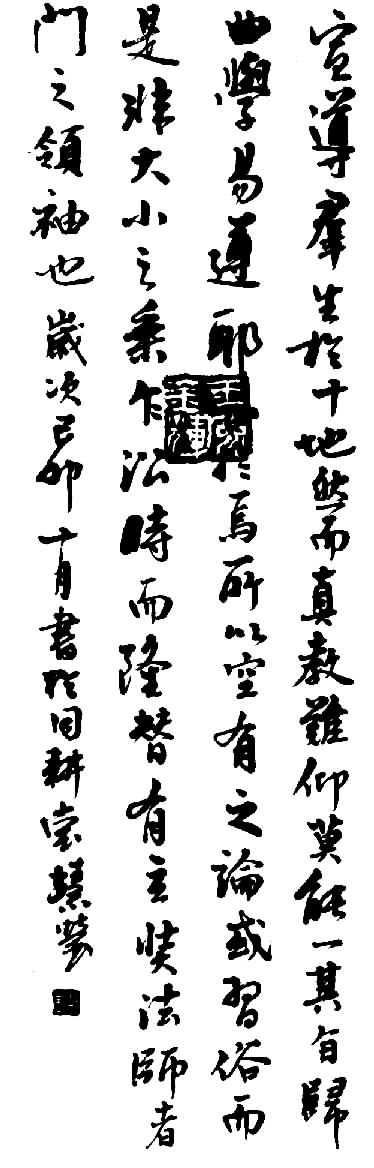 宣導羣生於十地然而真教難仰莫能一其旨歸
曲學易遵耶於焉所以空有之論或習俗而
是非大小之乘乍沿時而隆替有玄奘法師者
門之領袖也歲次己卯十月書於耕堂